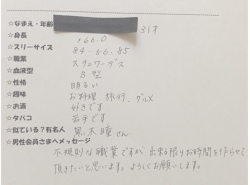 ☆なまえ・年齢 31才
☆身長 166.0
☆スリーサイズ 84 60.85
☆職業 スチュワーデス
☆血液型 B型
☆性格 明るい
☆趣味 お料理 旅行、グルメ
☆お酒 好きです
☆タバコ 否
☆似ている?有名人 黒木瞳さん
☆男性会員さまへメッセージ
不規則な職業ですが、出来る限りお時間を作らせて
頂きたいと思います。よろしくお願いします。